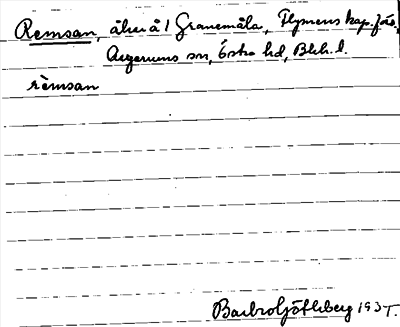 Remsan, åker å 1 Granemåla, Flymens kap.förs.,
Augerums sn, Östra hd, Blek. l.
rèmsan
Barbro Göthberg 1935.